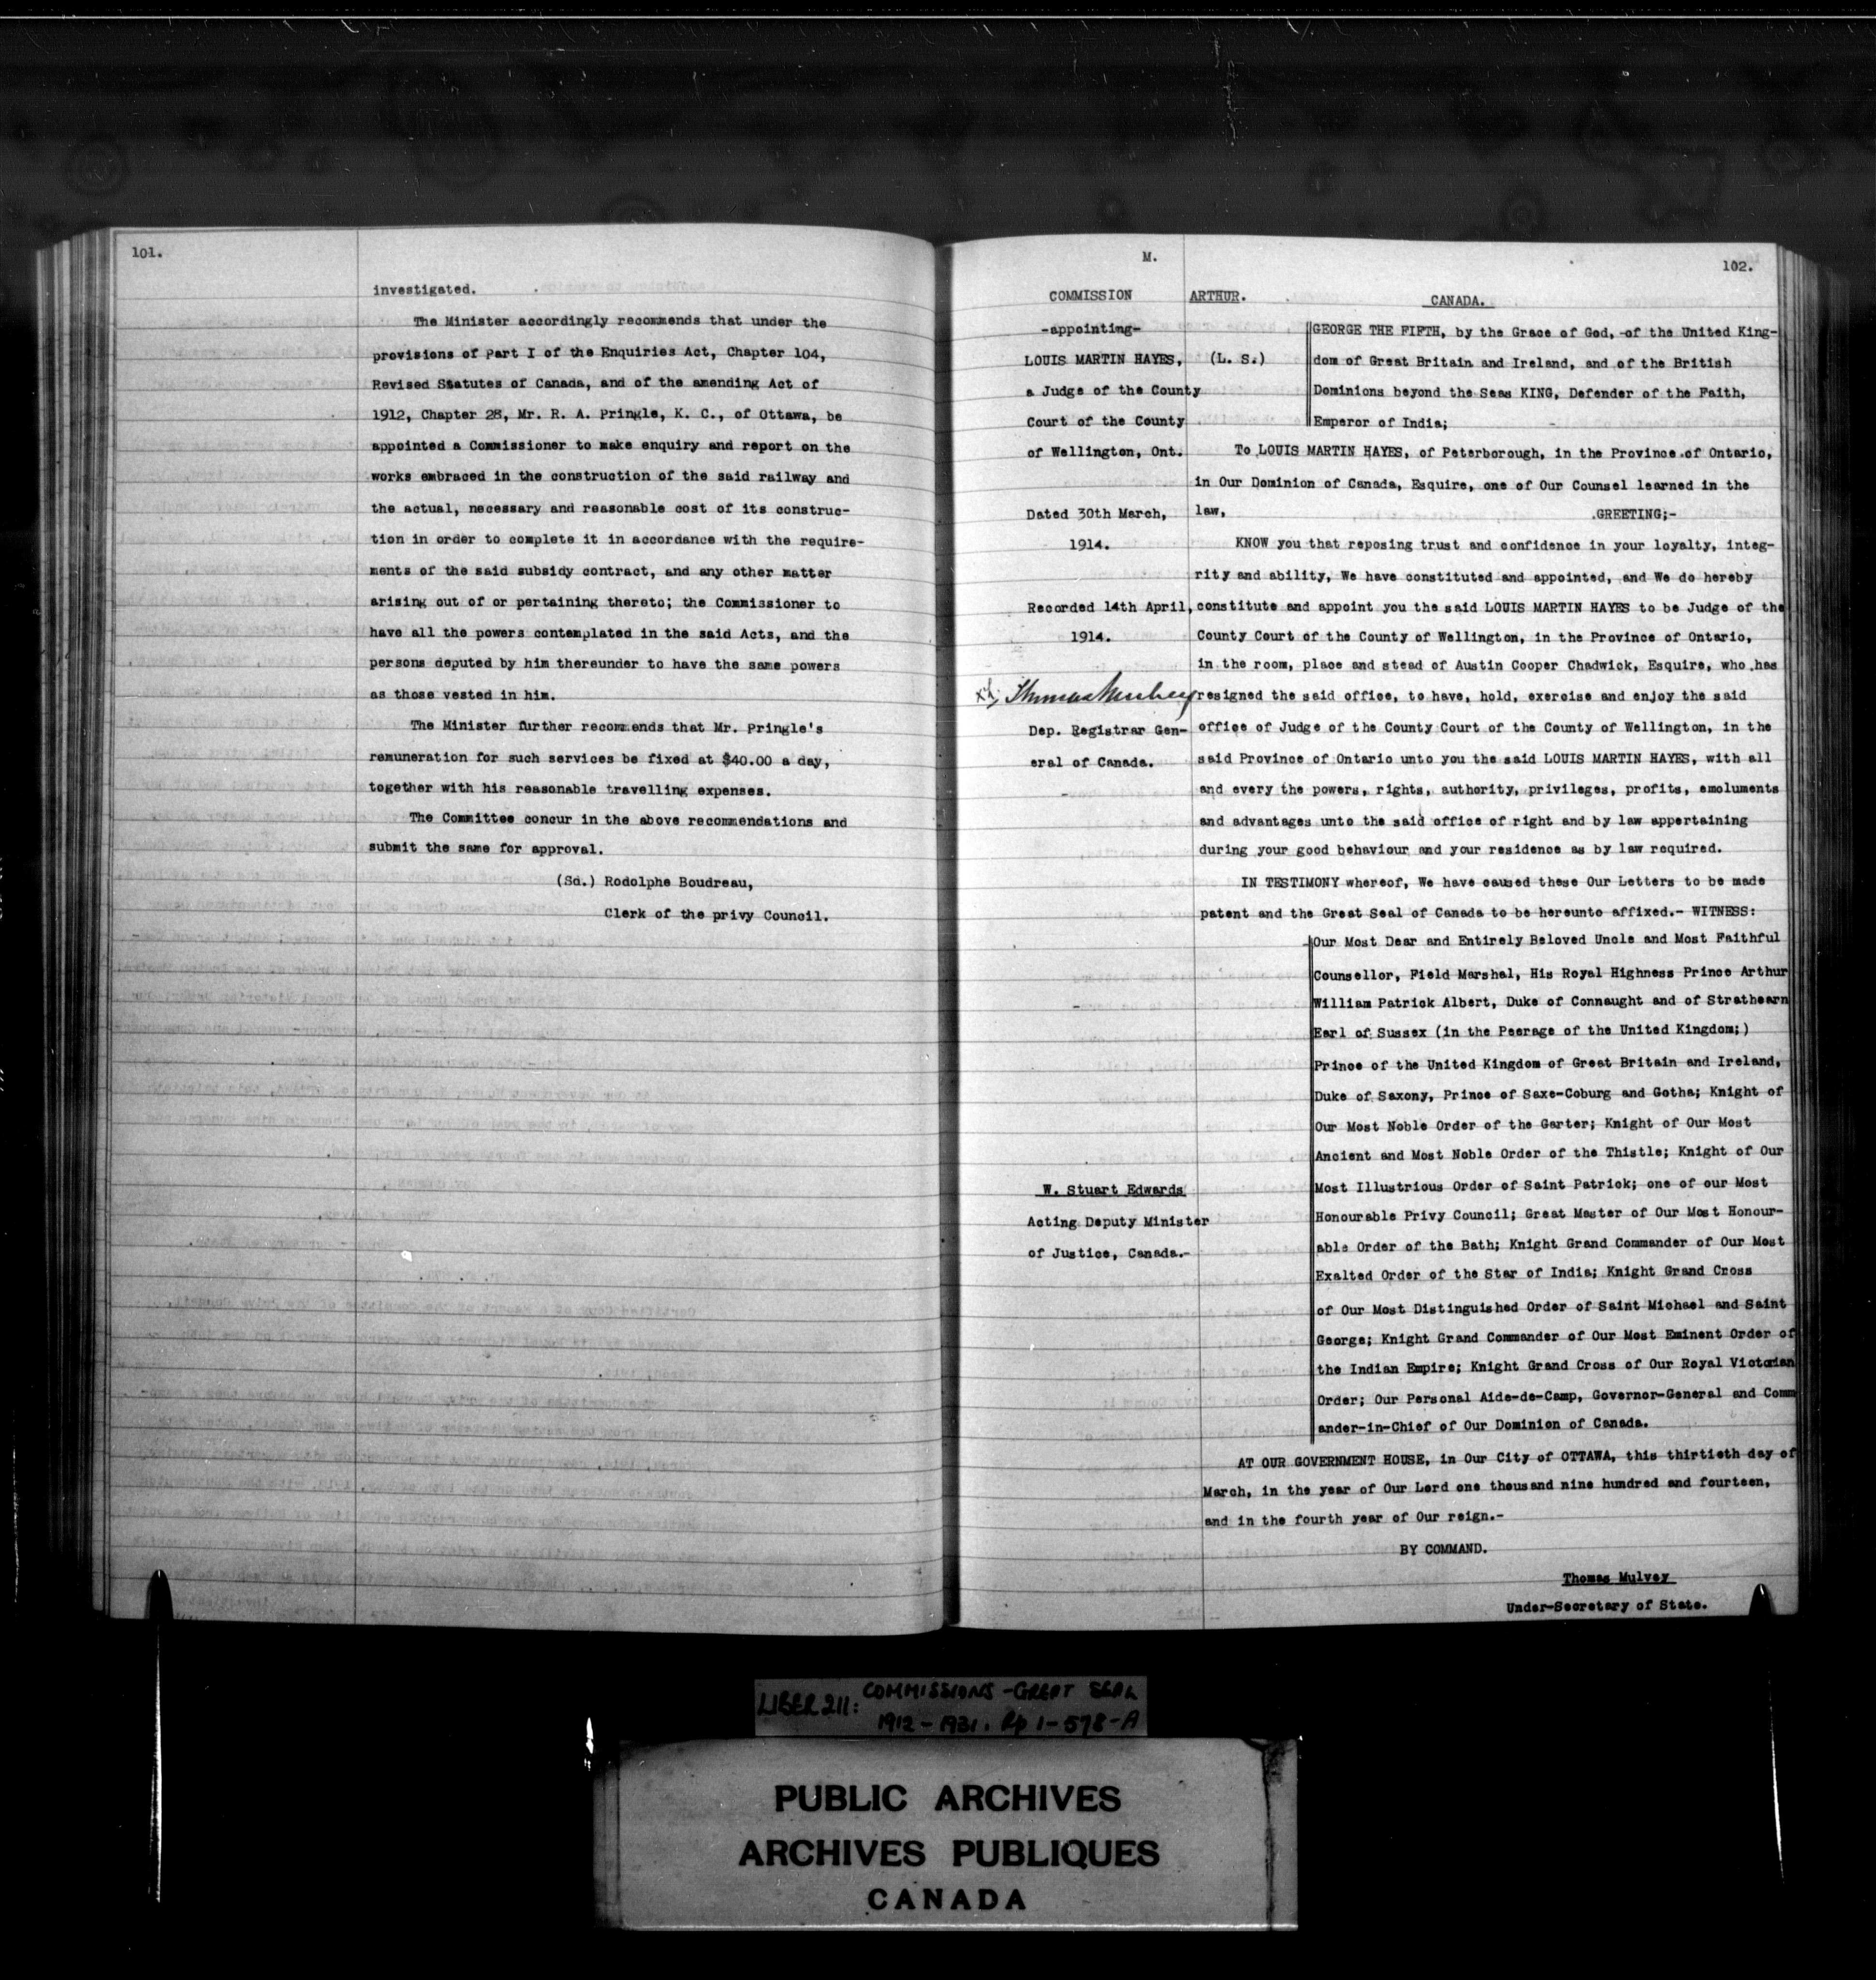 101.
investigated.
The Minister accordingly recommends that under the
provisions of Part I of the Enquiries Act, Chapter 104,
Revised Statutes of Canada, and of the amending Act of
1912, Chapter 28, Mr. R. A. Pringle, K. C., of Ottawa, be
appointed a Commissioner to make enquiry and report on the
works embraced in the construction of the said railway and
the actual, necessary and reasonable cost of its construc-
tion in order to complete it in accordance with the require-
ments of the said subsidy contract, and any other matter
arising out of or pertaining thereto; the Commissioner to
have all the powers contemplated in the said Acts, and the
persons deputed by him thereunder to have the same powers
as those vested in him.
The Minister further recommends that Mr. Pringle's
remuneration for such services be fixed at $40.00 a day,
together with his reasonable travelling expenses.
The Committee concur in the above recommendations and
submit the same for approval.
(Sd.) Rodolphe Boudreau,
Clerk of the privy Council.
M.
102.
COMMISSION
-appointing-
LOUIS MARTIN HAYES,
a Judge of the County
Court of the County
of Wellington, Ont.
Dated 30th March,
1914.
Recorded 14th April,
1914.
Dep. Registrar Gen-
eral of Canada.
W. Stuart Edwards
Acting Deputy Minister
of Justice, Canada.-
ARTHUR.
CANADA.
(L. S.)
GEORGE THE FIFTH, by the Grace of God, -of the United King-
dom of Great Britain and Ireland, and of the British
Dominions beyond the Seas KING, Defender of the Faith,
Emperor of India;
To LOUIS MARTIN HAYES, of Peterborough, in the Province of Ontario,
in Our Dominion of Canada, Esquire, one of Our Counsel learned in the
law, GREETING;-
KNOW you that reposing trust and confidence in your loyalty, integ-
rity and ability, We have constituted and appointed, and We do hereby
constitute and appoint you the said LOUIS MARTIN HAYES to be Judge of the
County Court of the County of Wellington, in the Province of Ontario,
in the room, place and stead of Austin Cooper Chadwick, Esquire, who has
resigned the said office, to have, hold, exercise and enjoy the said
office of Judge of the County Court of the County of Wellington, in the
said Province of Ontario unto you the said LOUIS MARTIN HAYES, with all
and every the powers, rights, authority, privileges, profits, emoluments
and advantages unto the said office of right and by law appertaining
during your good behaviour and your residence as by law required.
IN TESTIMONY whereof, We have caused these Our Letters to be made
patent and the Great Seal of Canada to be hereunto affixed.- WITNESS:
Our Most Dear and Entirely Beloved Uncle and Most Faithful
Counsellor, Field Marshal, His Royal Highness Prince Arthur
William Patrick Albert, Duke of Connaught and of Strathearn
Earl of Sussex (in the Peerage of the United Kingdom;)
Prince of the United Kingdom of Great Britain and Ireland,
Duke of Saxony, Prince of Saxe-Coburg and Gotha; Knight of
Our Most Noble Order of the Garter; Knight of Our Most
Ancient and Most Noble Order of the Thistle; Knight of Our
Most Illustrious Order of Saint Patrick; one of our Most
Honourable Privy Council; Great Master of Our Most Honour-
able Order of the Bath; Knight Grand Commander of Our Most
Exalted Order of the Star of India; Knight Grand Cross
of Our Most Distinguished Order of Saint Michael and Saint
George; Knight Grand Commander of Our Most Eminent Order of
the Indian Empire; Knight Grand Cross of Our Royal Victorian
Order; Our Personal Aide-de-Camp, Governor-General and Comm
ander-in-Chief of Our Dominion of Canada.
AT OUR GOVERNMENT HOUSE, in Our City of OTTAWA, this thirtieth day of
March, in the year of Our Lord one thousand nine hundred and fourteen,
and in the fourth year of Our reign.-
BY COMMAND.
Thomas Mulvey
Under-Secretary of State.
LIBER 211: COMMISSIONS - GREAT SEAL
1912 - 1931. Pp 1-578-A
PUBLIC ARCHIVES
ARCHIVES PUBLIQUES
CANADA